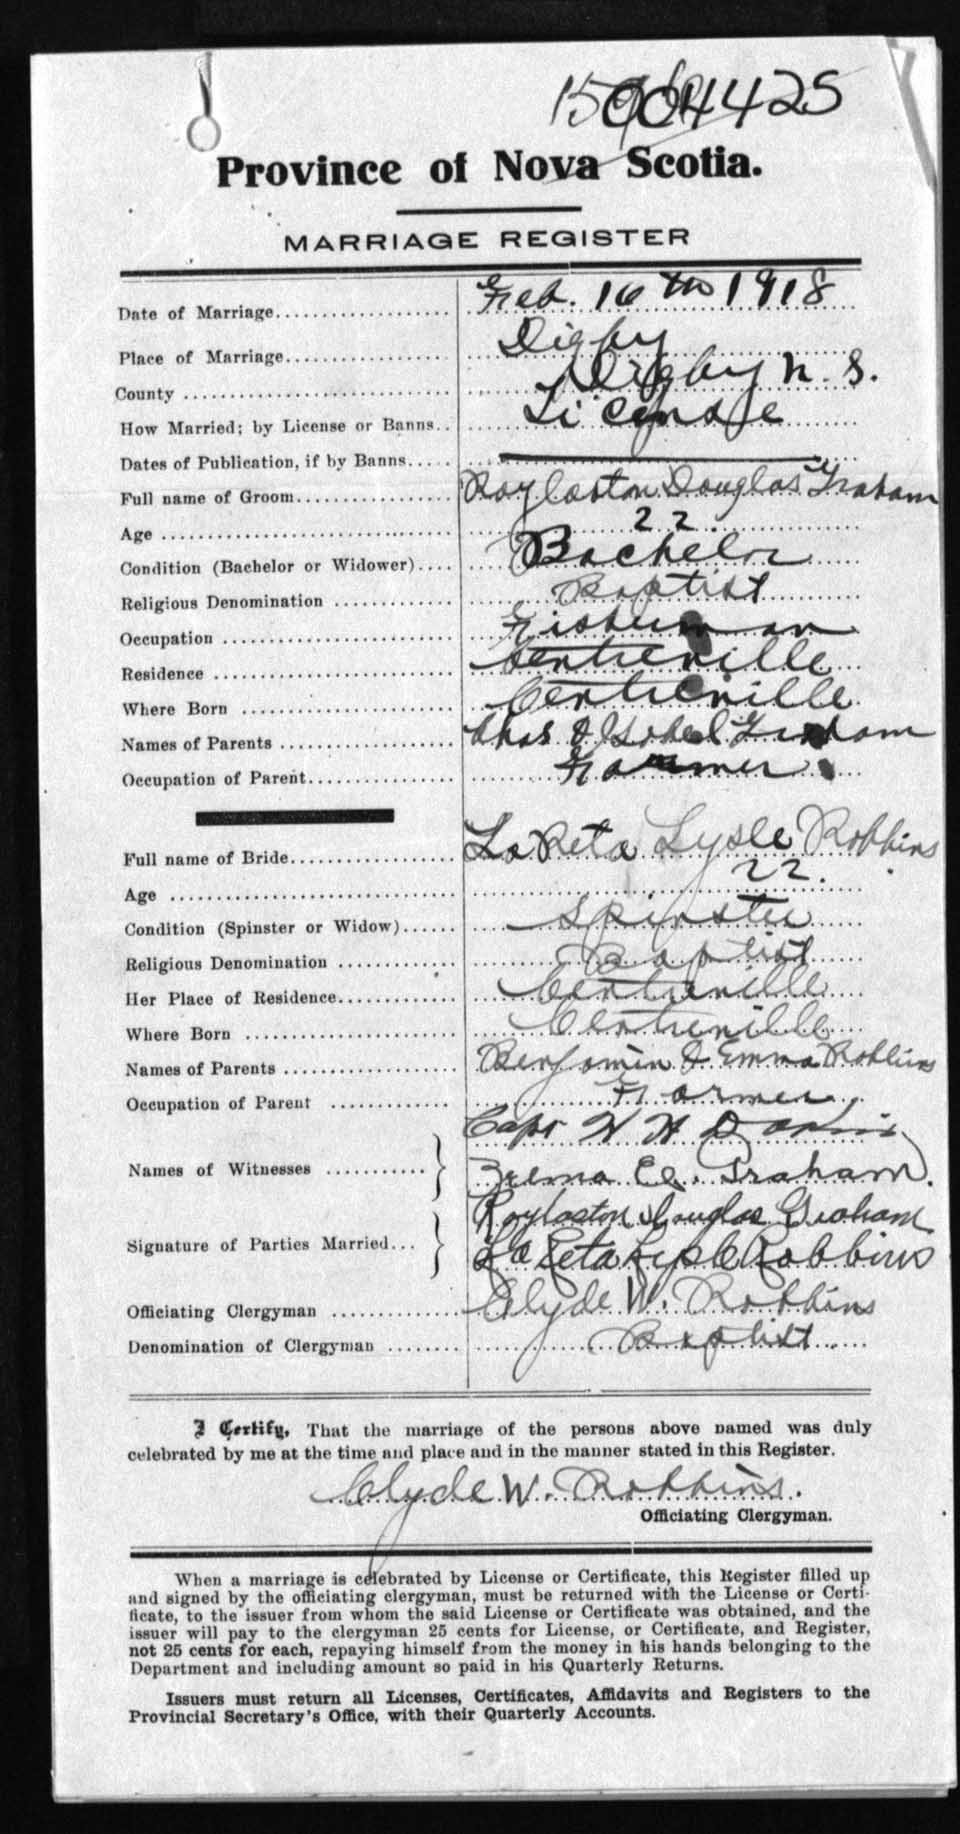 004425
Province of Nova Scotia.
MARRIAGE REGISTER
Date of Marriage Feb. 16th 1918
Place of Marriage Digby
County Digby N. S.
How Married; by License or Banns License
Dates of Publication, if by Banns
Full name of Groom Roylaston Douglas Graham
Age 22.
Condition (Bachelor or Widower) Bachelor
Religious Denomination Baptist
Occupation Fisherman
Residence Centreville
Where Born Centreville
Names of Parents Chas & Isabel Graham
Occupation of Parent Farmer
Full name of Bride LaReta Lysle Robbins
Age 22.
Condition (Spinster or Widow) Spinster
Religious Denomination Baptist
Her Place of Residence Centreville
Where Born Centreville
Names of Parents Benjamin & Emma Robbins
Occupation of Parent Farmer
Capt H H
Names of Witnesses
Graham.
Roylaston Douglas Graham
Signature of Parties Married
LaReta Lysle Robbins
Officiating Clergyman Clyde W. Robbins
Denomination of Clergyman Baptist
I Certify, That the marriage of the persons above named was duly
celebrated by me at the time and place and in the manner stated in this Register.
Clyde W. Robbins.
Officiating Clergyman.
When a marriage is celebrated by License or Certificate, this Register filled up
and signed by the officiating clergyman, must be returned with the License or Certi-
ficate, to the issuer from whom the said License or Certificate was obtained, and the
issuer will pay to the clergyman 25 cents for License, or Certificate, and Register,
not 25 cents for each, repaying himself from the money in his hands belonging to the
Department and including amount so paid in his Quarterly Returns.
Issuers must return all Licenses, Certificates, Affidavits and Registers to the
Provincial Secretary's Office, with their Quarterly Accounts.